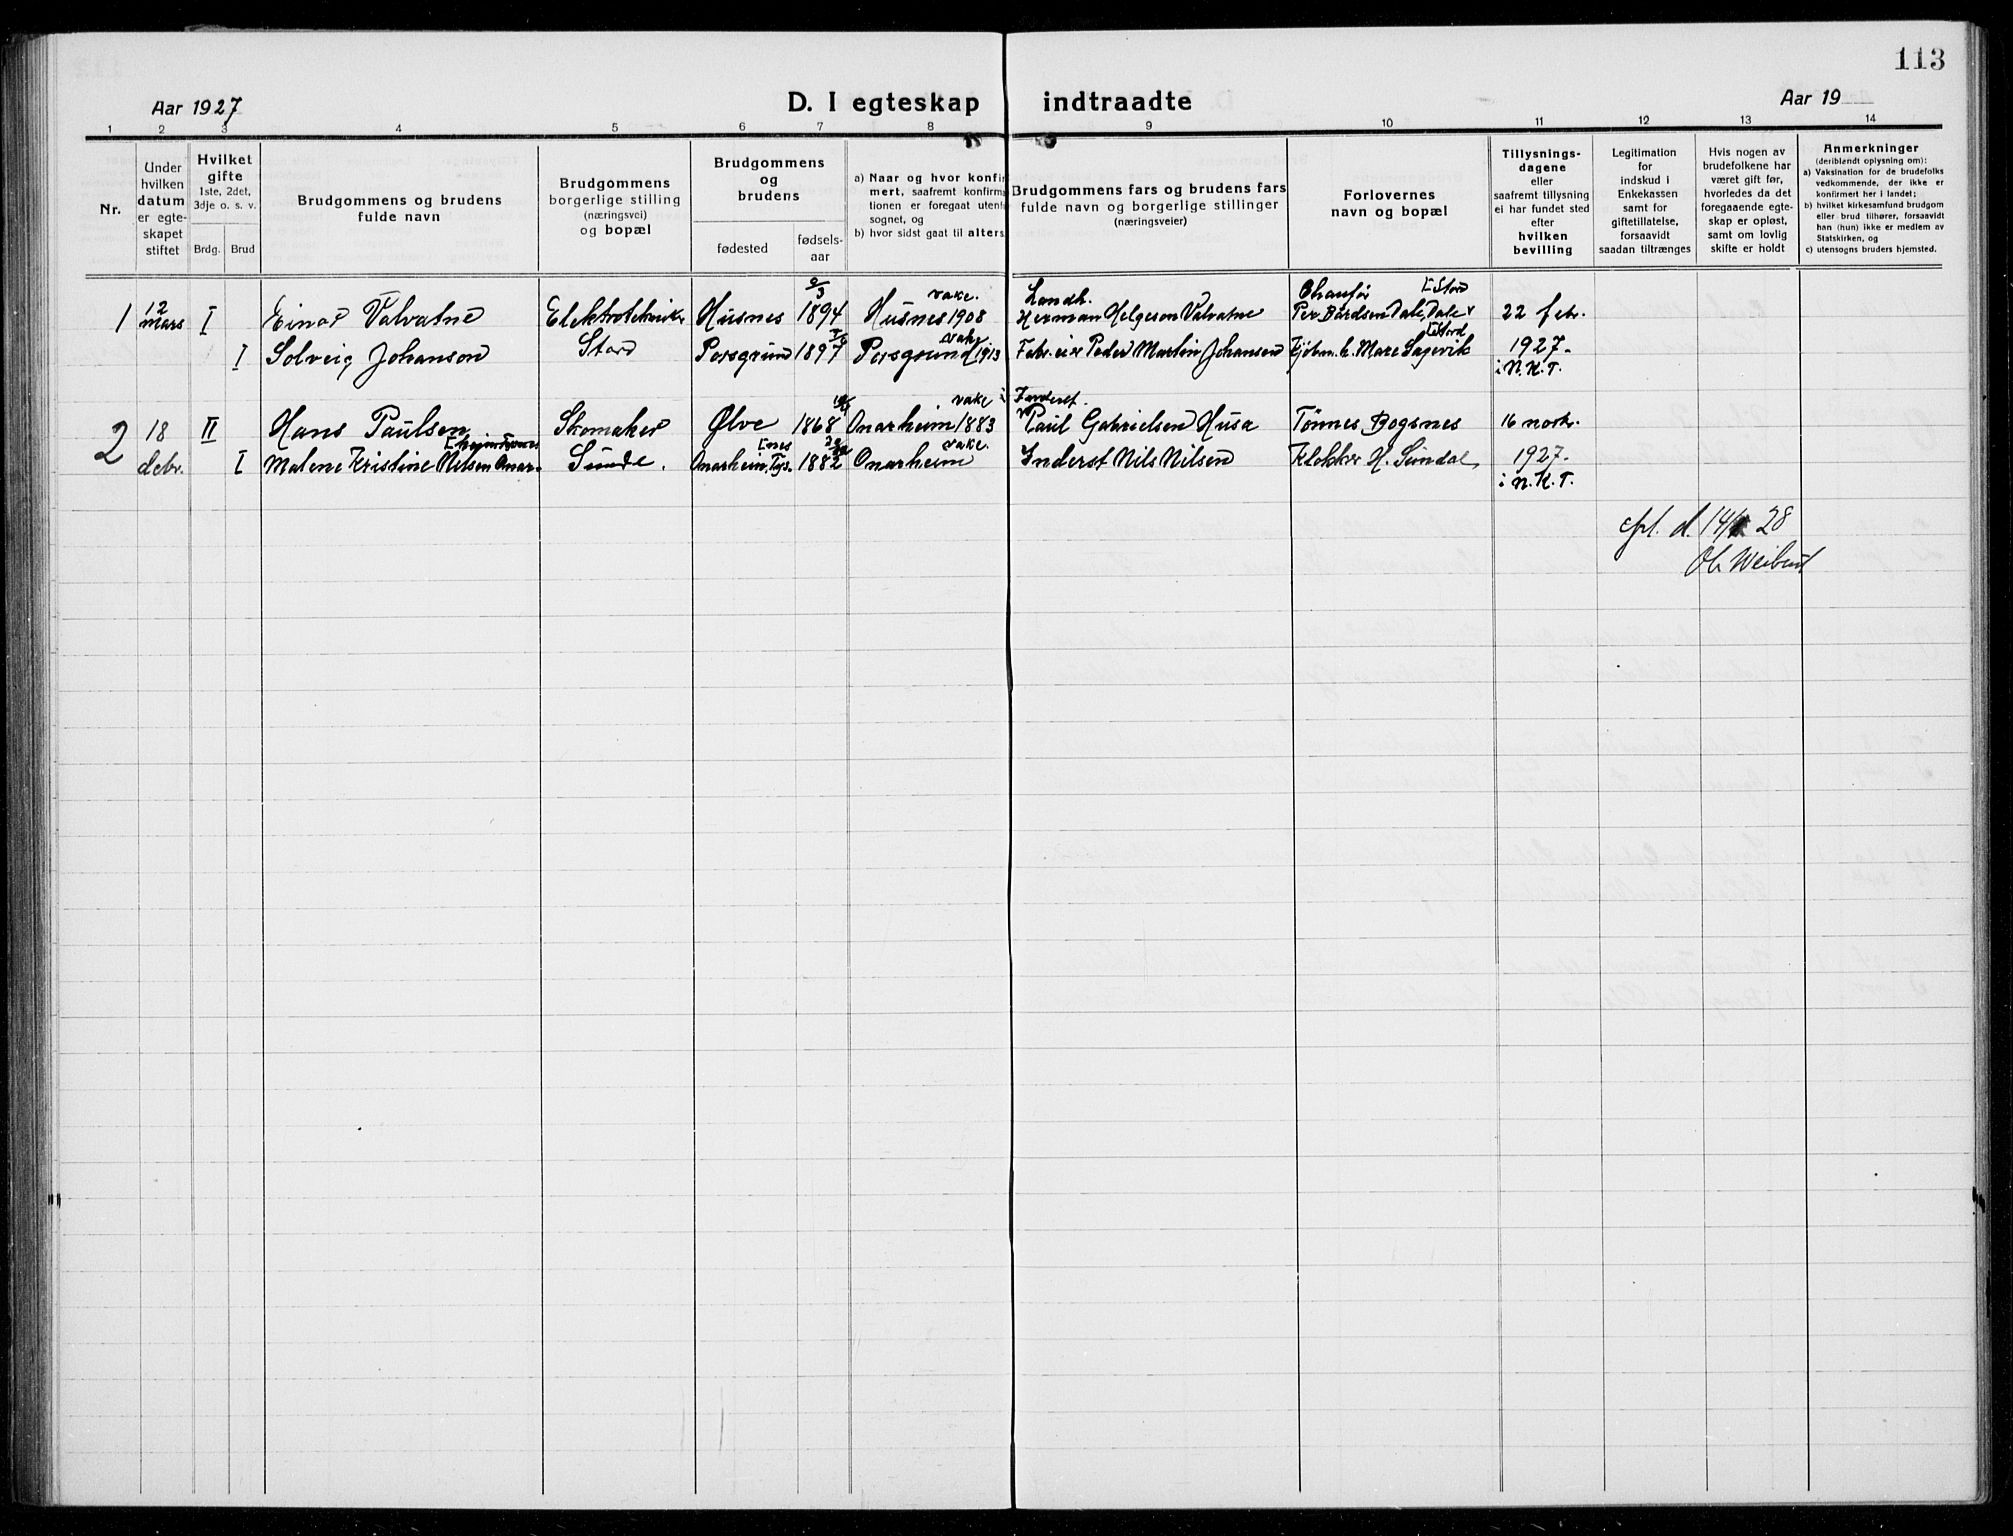 113
Aar 1927
D. I egteskap indtraadte
Aar 19
1 2 3 4 5 6 7 8 9 10 11 12 13 14
Nr.
Under
hvilken
datum
er egte-
skapet
stiftet
Hvilket
gifte
1ste, 2det,
3dje o. s. v.
Brdg. Brud
Brudgommens og brudens
fulde navn
Brudgommens
borgerlige stilling
(næringsvei)
og bopæl
Brudgommens
og
brudens
fødested
fødsels-
aar
a) Naar og hvor konfir
mert, saafremt konfirma
tionen er foregaat utenfo
sognet, og
b) hvor sidst gaat til alters
Brudgommens fars og brudens fars
fulde navn og borgerlige stillinger
(næringsveier)
Forlovernes
navn og bopæl
Tillysnings-
dagene
eller
saafremt tillysning
ei har fundet sted
efter
hvilken
bevilling
Legitimation
for
indskud i
Enkekassen
samt for
giftetillatelse,
forsaavidt
saadan tiltrænges
Hvis nogen av
brudefolkene har
været gift før,
hvorledes da det
foregaaende egte-
skap er opløst,
samt om lovlig
skifte er holdt
Anmerkninger
(deriblandt oplysning om):
a) Vaksination for de brudefolks
vedkommende, der ikke er
konfirmert her i landet;
b) hvilket kirkesamfund brudgom
eller brud tilhører, forsaavidt
han (hun) ikke er medlem av
Statskirken, og
c) utensogns bruders hjemsted.
vake. Landh. Chauför Stord
1 12 mars I Einar Valvatne Elektrotekniker Husnes 1894 Husnes 1908 Herman Helgeson Valvatne Per Bårdsen Dale, Dale 22 febr.
vake Stord
I Solveig Johanson Stord Porsgrund 1897 Porsgrund 1913 Peder Martin Johansen Mare Sagevik 1927.
i N.K.T.
vake Inderst
2 18 II Hans Paulsen Skomaker Ølve 1868 Onarheim 1883 Paul Gabrielsen Husa Tønnes Bogsnes 16 novbr.
nes vake.
debr. I Malene Kristine Nilsen Onar- Sunde. Onarheim, Tys- 1882 Onarheim Inderst Nils Nilsen Klokker H. Sundal 1927.
i N.K.T.
d. 14/ 28